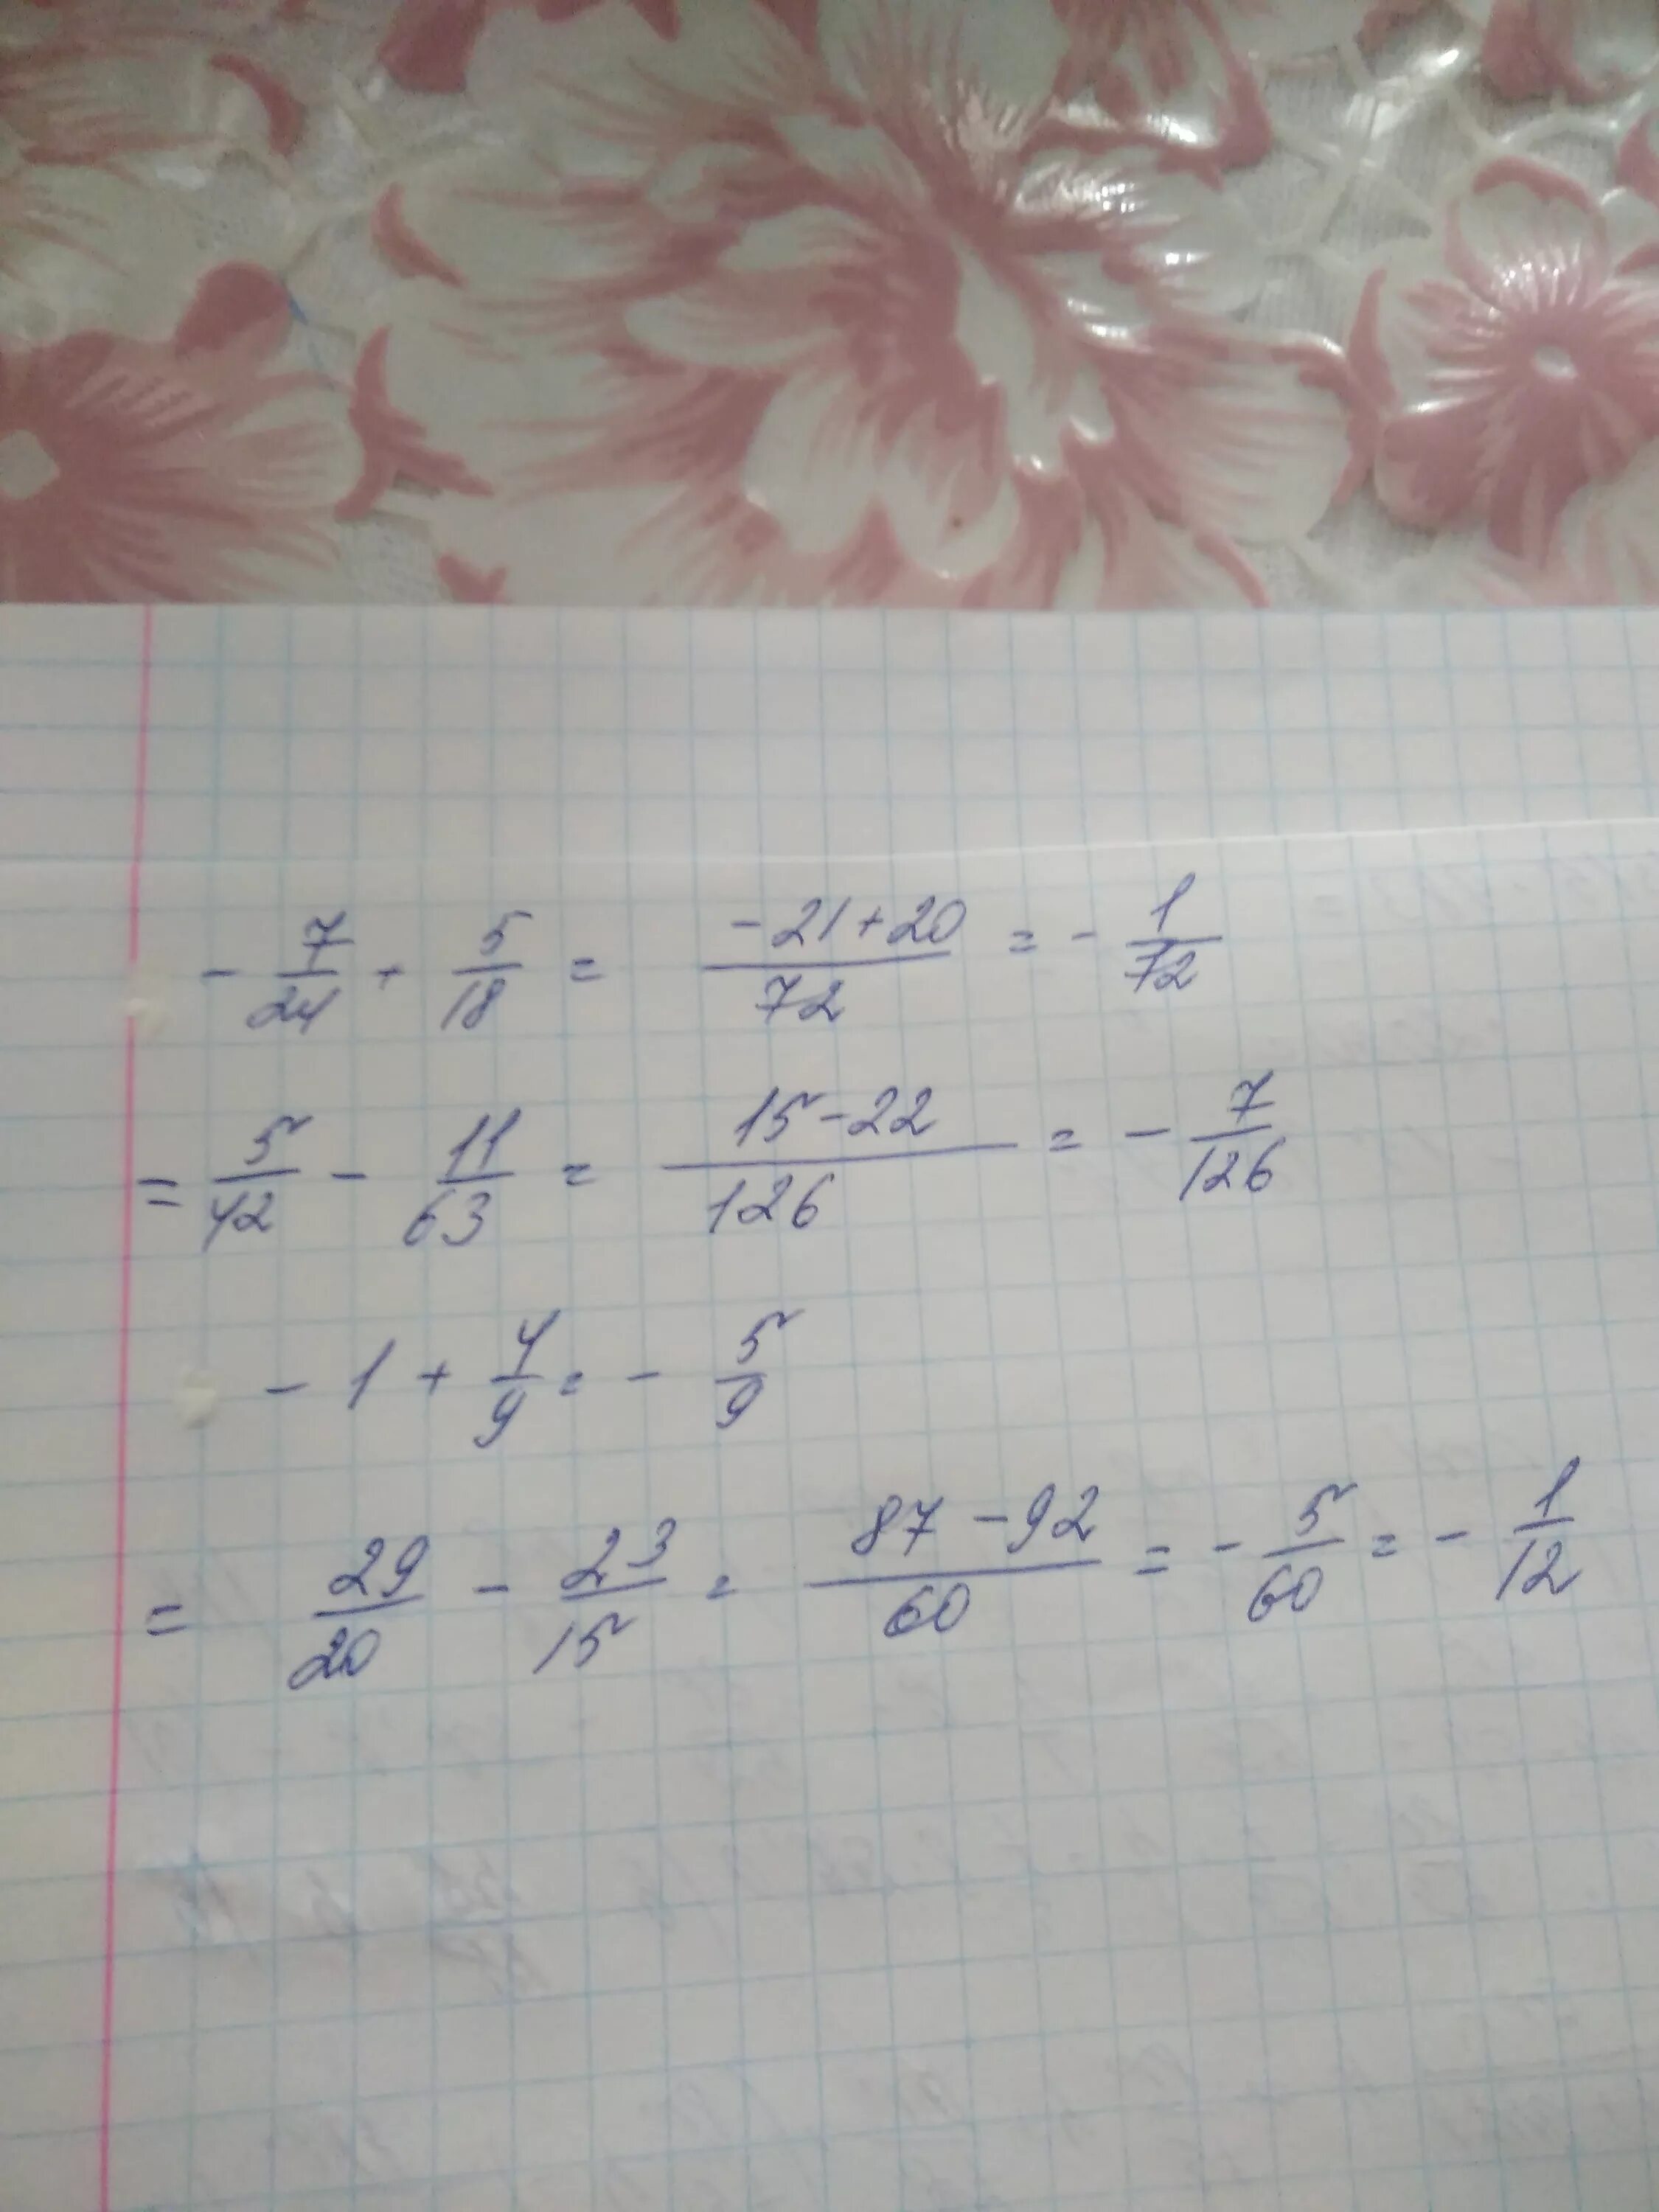 - 7/24 + 5/18 = (-21+20)/72 = - 1/72
= 5/42 - 11/63 = (15-22)/126 = - 7/126
- 1 + 4/9 = - 5/9
= 29/20 - 23/15 = (87-92)/60 = - 5/60 = - 1/12